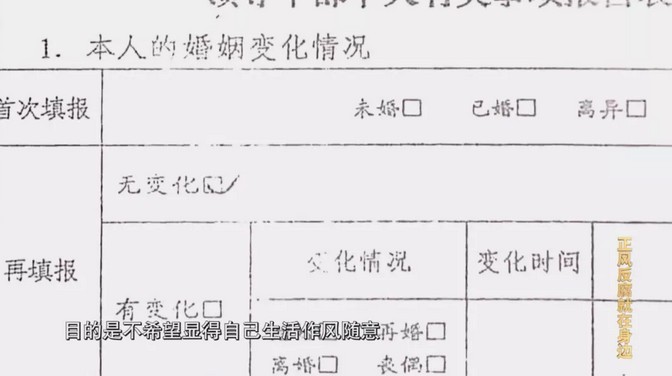 1. 本人的婚姻变化情况
首次填报 未婚□ 已婚□ 离异□
无变化☑
再填报
变化情况 变化时间
有变化□
再婚□
离婚□ 丧偶□
目的是不希望显得自己生活作风随意
正风反腐就在身边